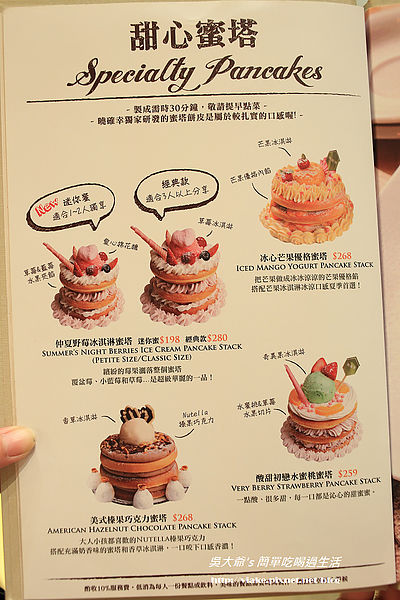 甜心蜜塔
Specialty Pancakes
- 製成需時30分鐘，敬請提早點菜 -
- 曉確幸獨家研發的蜜塔餅皮是屬於較扎實的口感喔! -
New 迷你蜜
適合1~2人獨享
經典款
適合3人以上分享
芒果冰淇淋
芒果優格內餡
愛心棉花糖
草莓冰淇淋
草莓&藍莓
水果夾餡
冰心芒果優格蜜塔 $268
Iced Mango Yogurt Pancake Stack
把芒果做成冰冰涼涼的芒果優格餡
搭配芒果冰淇淋冰涼口感夏季首選！
仲夏野莓冰淇淋蜜塔 迷你蜜$198 經典款$280
Summer's Night Berries Ice Cream Pancake Stack
(Petite Size/Classic Size)
繽紛的莓果灑落整個蜜塔
覆盆莓、小藍莓和草莓...是超級華麗的一品！
奇異果冰淇淋
香草冰淇淋
Nutella
榛果巧克力
水蜜桃&草莓
水果切片
酸甜初戀水蜜桃蜜塔 $259
Very Berry Strawberry Pancake Stack
一點酸、很多甜，每一口都是沁心的甜蜜蜜。
美式榛果巧克力蜜塔 $268
American Hazelnut Chocolate Pancake Stack
大人小孩都喜歡的NUTELLA榛果巧克力
搭配充滿奶香味的蜜塔和香草冰淇淋，一口咬下口感香濃！
吳大爺's 簡單吃喝過生活
http://viake.pixnet.net/blog
酌收10%服務費，低消為每人一份餐點或飲料